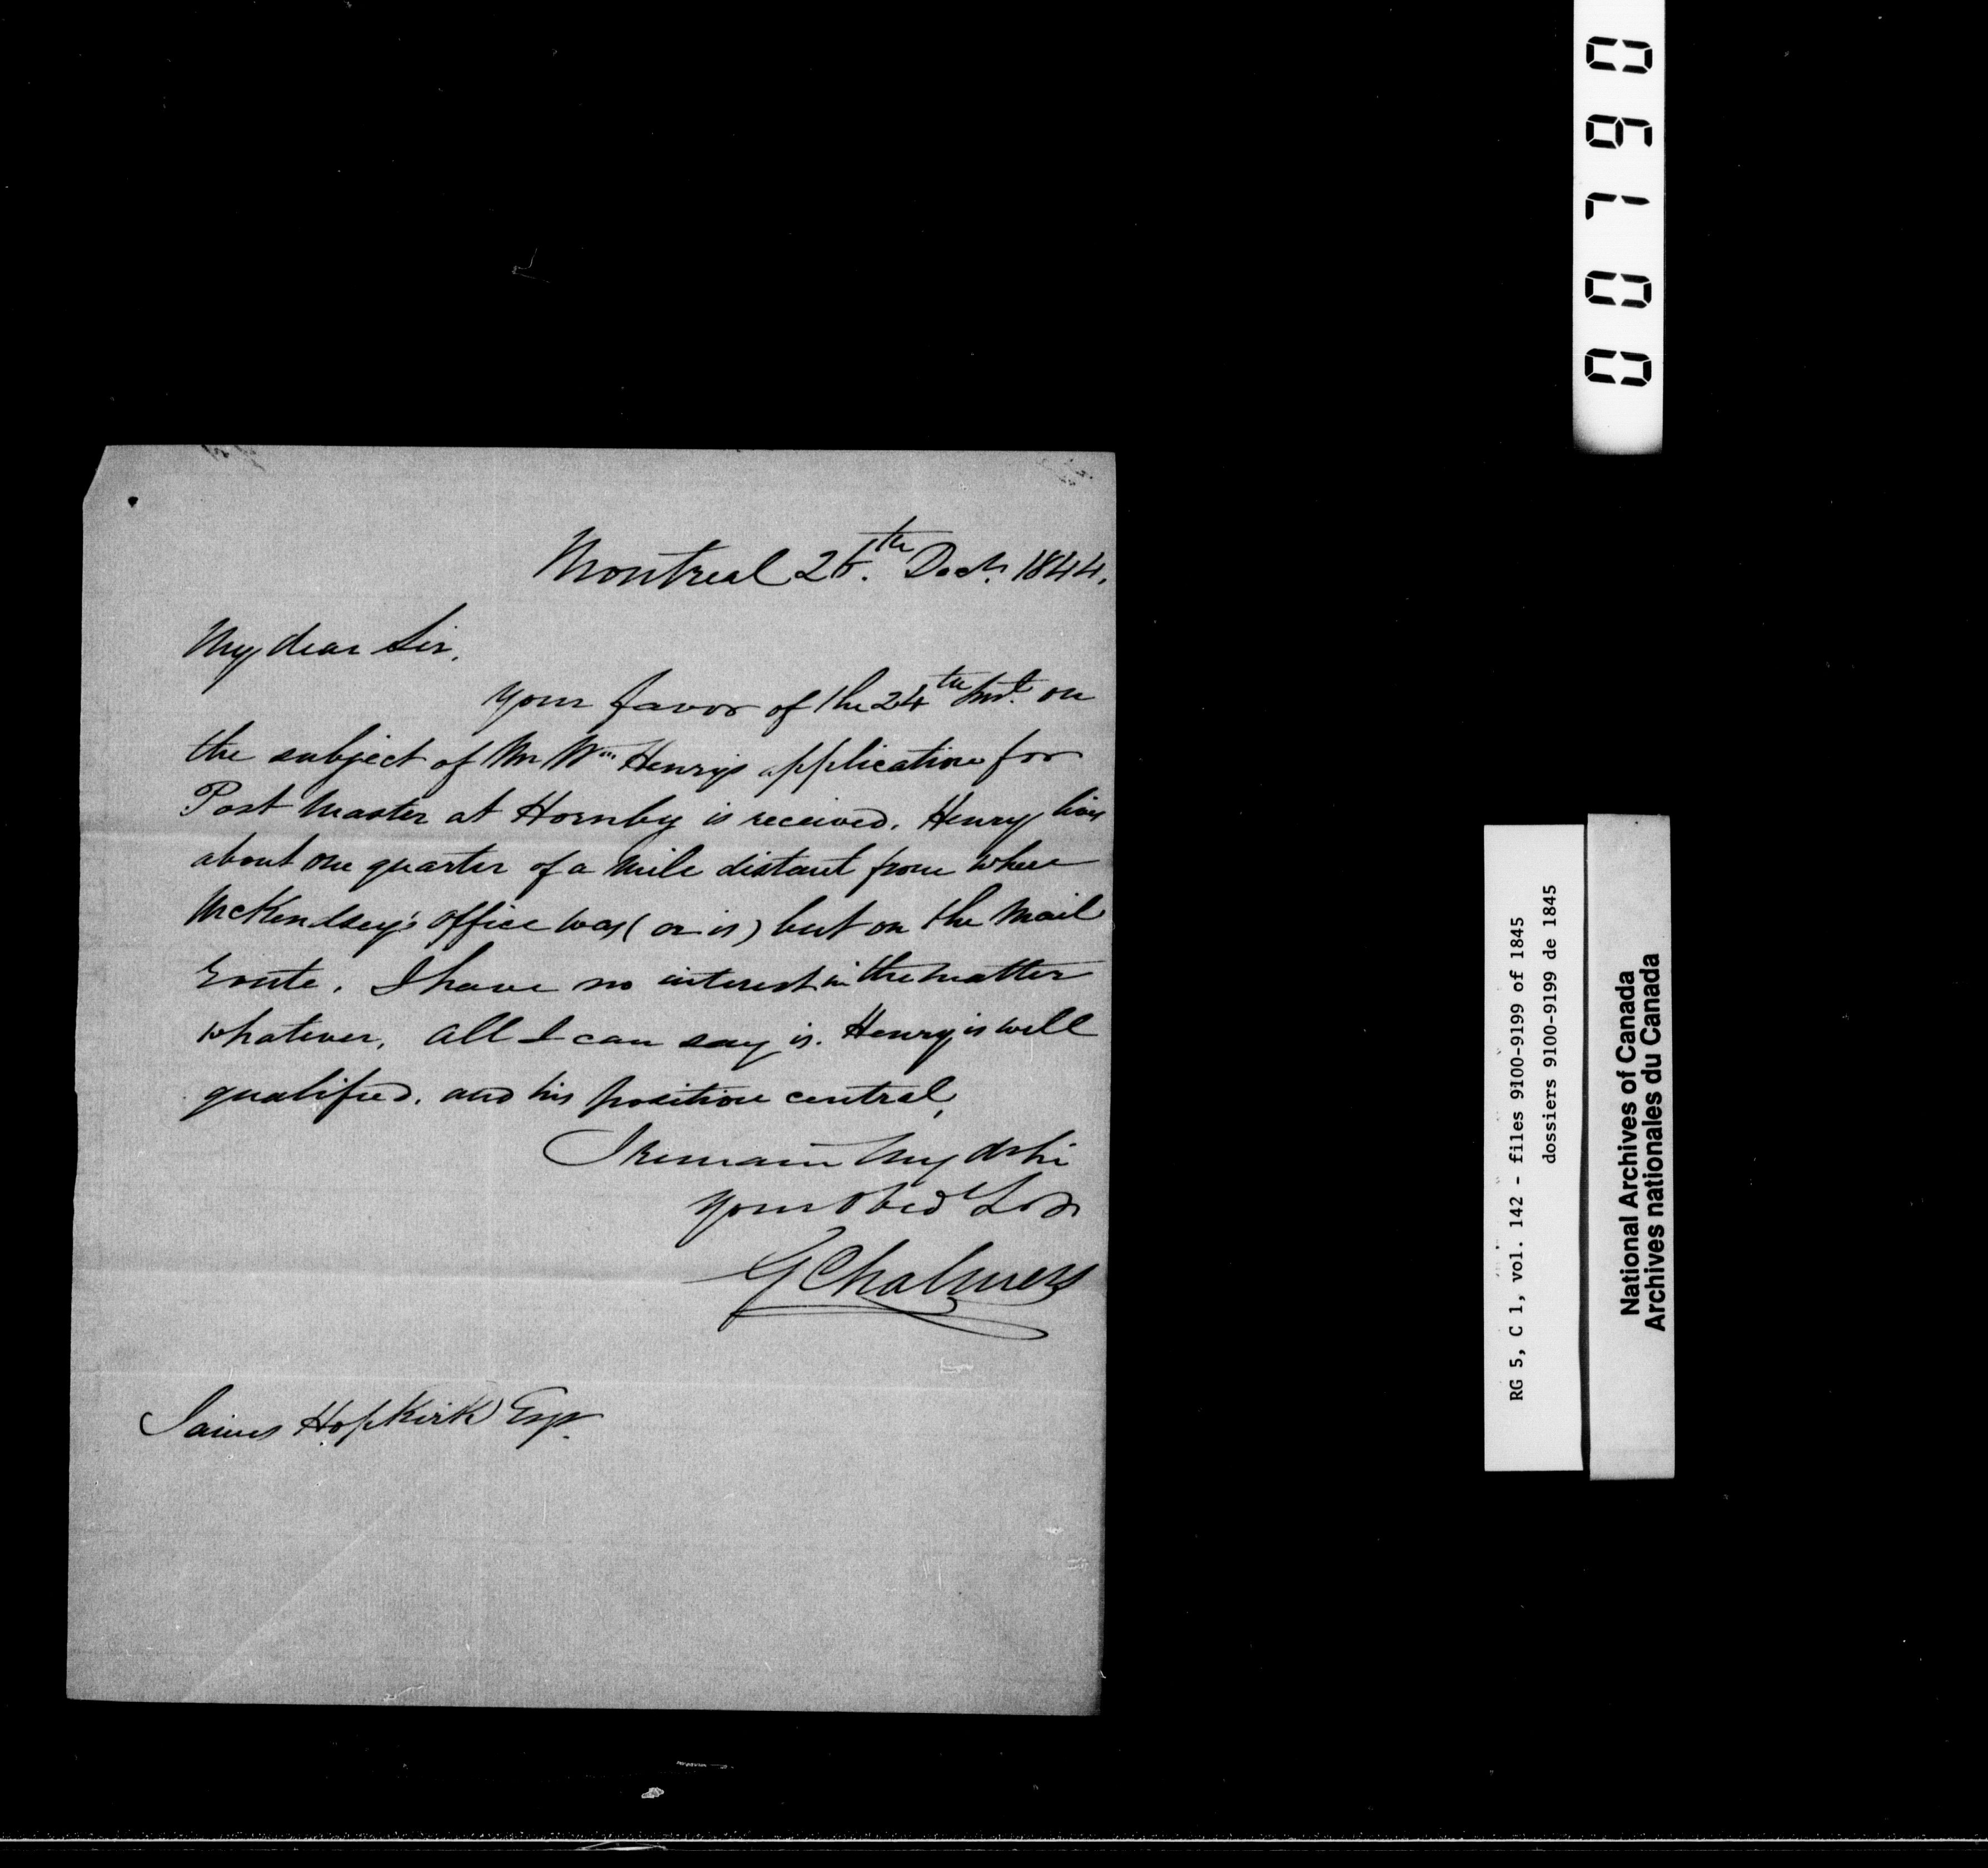 Montreal 26th. Decr. 1844.
My dear Sir,
Your favor of the 24th Inst. on
the subject of Mr Wm Henry's application for
Post Master at Hornby is received. Henry lives
about one quarter of a mile distant from where
McKendsey's office was (or is) but on the Mail
route. I have no interest in the matter
whatever, all I can say is. Henry is well
qualified. and his position central,
I remain My dr Sir
Your Obed St
G Chalmers
James Hopkirk Esqr.
00160
RG 5, C 1, vol. 142 - files 9100-9199 of 1845
dossiers 9100-9199 de 1845
National Archives of Canada
Archives nationales du Canada